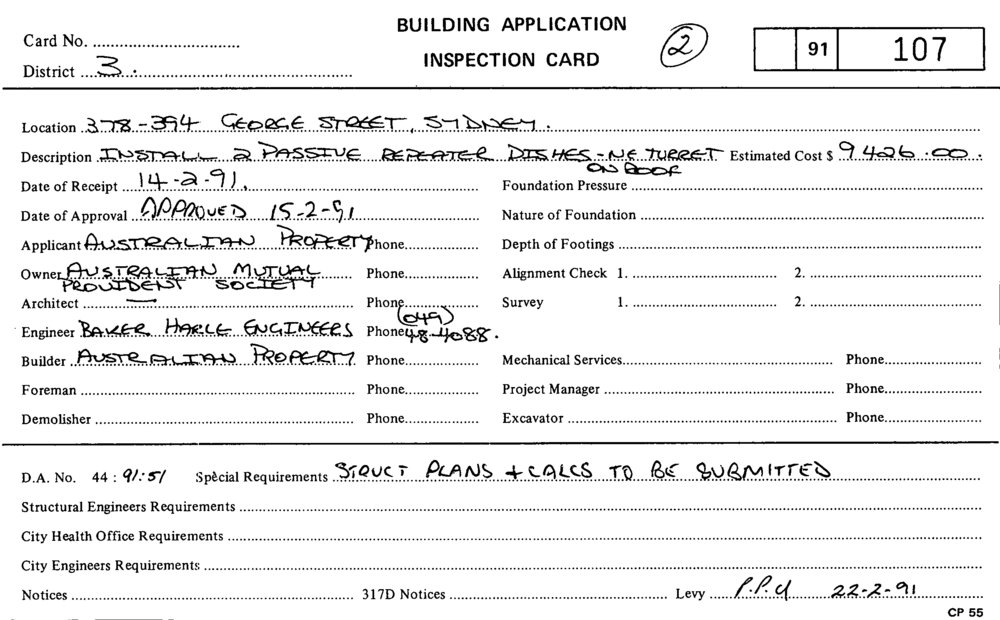 BUILDING APPLICATION
INSPECTION CARD
Card No.
District 3.
2
91 107
Location 378-394 GEORGE STREET, SYDNEY.
Description INSTALL 2 PASSIVE REPEATER DISHES - NE TURRET ON ROOF Estimated Cost $ 9426.00
Date of Receipt 14-2-91. Foundation Pressure
Date of Approval APPROVED 15-2-91 Nature of Foundation
Applicant AUSTRALIAN PROPERTY Phone Depth of Footings
Owner AUSTRALIAN MUTUAL PROVIDENT SOCIETY Phone Alignment Check 1. 2.
Architect — Phone Survey 1. 2.
Engineer BAKER HARLE ENGINEERS Phone (049) 48-4088.
Builder AUSTRALIAN PROPERTY Phone Mechanical Services Phone
Foreman Phone Project Manager Phone
Demolisher Phone Excavator Phone
D.A. No. 44 : 91:51 Special Requirements STRUCT PLANS + CALCS TO BE SUBMITTED
Structural Engineers Requirements
City Health Office Requirements
City Engineers Requirements
Notices 317D Notices Levy 22-2-91
CP 55